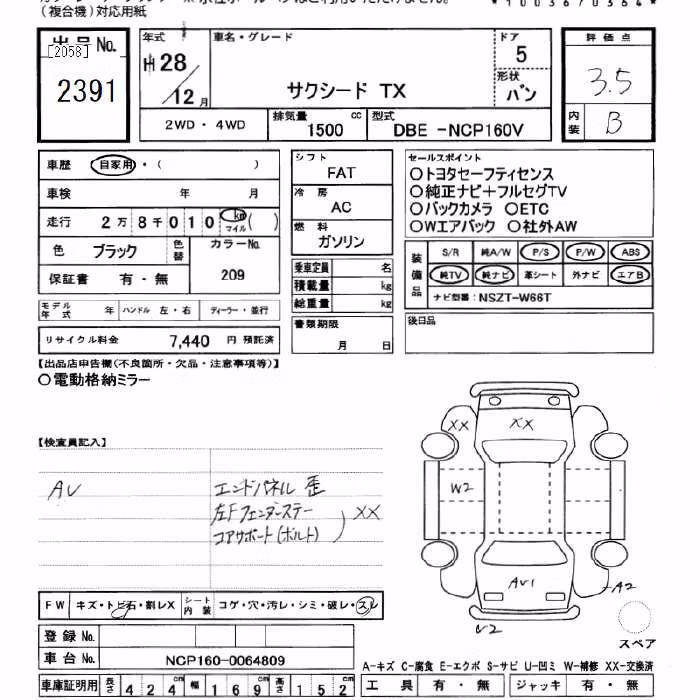 (複合機)対応用紙
出品No.
[2058]
2391
年式
H28/12月
車名・グレード
サクシード TX
ドア
5
形状
バン
評価点
3.5
内装
B
2WD・4WD
排気量
1500 cc
型式
DBE -NCP160V
車歴 自家用・( )
車検 年 月
走行 2万8千010 km マイル( )
色 ブラック 色替 カラーNo.
保証書 有・無 209
モデル年式 年 ハンドル 左・右 ディーラー・並行
リサイクル料金 7,440円 預託済
シフト
FAT
冷房
AC
燃料
ガソリン
乗車定員 名
積載量 kg
総重量 kg
書類期限
月 日
セールスポイント
○トヨタセーフティセンス
○純正ナビ+フルセグTV
○バックカメラ ○ETC
○Wエアバック ○社外AW
装備品
S/R 純A/W P/S P/W ABS
純TV 純ナビ 革シート 外ナビ エアB
ナビ型番:NSZT-W66T
後日品
【出品店申告欄(不良箇所・欠品・注意事項等)】
○電動格納ミラー
【検査員記入】
AU
エンドパネル 歪
左Fフェンダーステー
コアサポート(ボルト)
XX
XX
XX
W2
AU1
A2
U2
スペア
FW キズ・トビ石・割レX シート内装 コゲ・穴・汚レ・シミ・破レ・スレ
登録No.
車台No. NCP160-0064809
車庫証明用 長さ 424cm 幅 169cm 高さ 152cm
A-キズ C-腐食 E-エクボ S-サビ U-凹ミ W-補修 XX-交換済
工具 有・無 ジャッキ 有・無